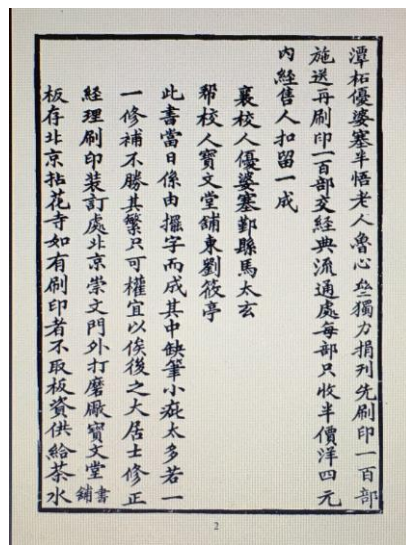 潭柘優婆塞半悟老人魯心獨力捐刊先刷印一百部
施送再刷印一百部交經典流通處每部只收半價洋四元
內經售人扣留一成
襄校人優婆塞鄞縣馬太玄
帮校人寶文堂舖東劉筱亭
此書當日係由擺字而成其中缺筆小疵太多若一
一修補不勝其繁只可權宜以俟後之大居士修正
經理刷印装訂處北京崇文門外打磨廠寶文堂書舖
板存北京拈花寺如有刷印者不取板資供給茶水
2